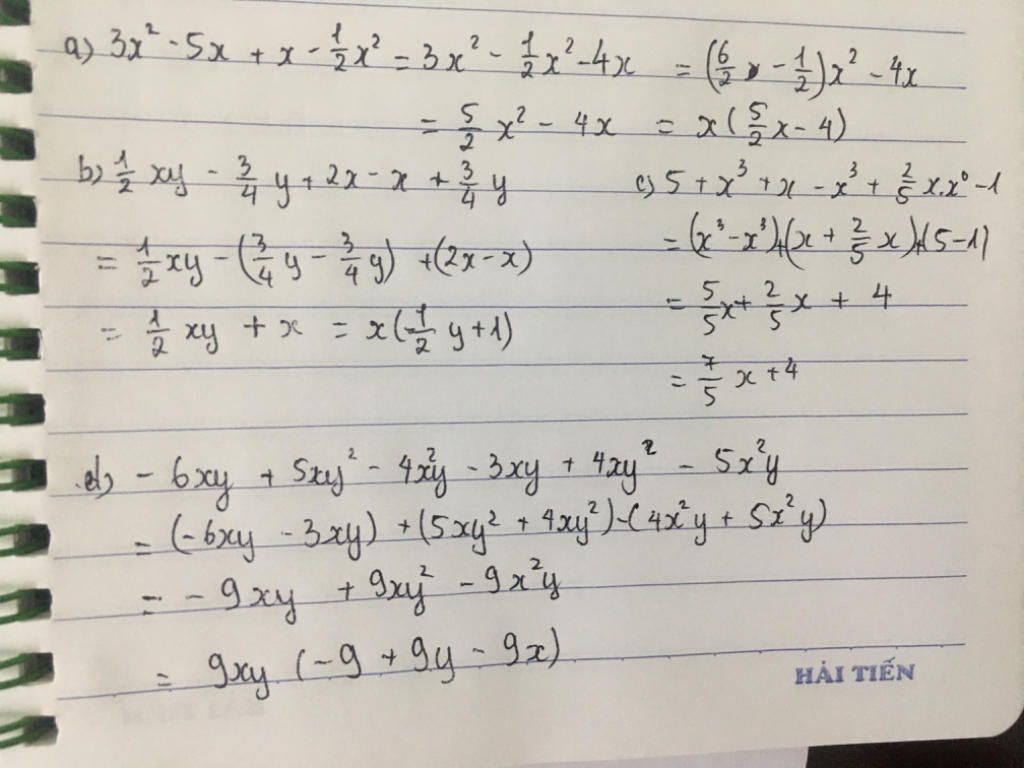 a) 3x² - 5x + x - 1/2x² = 3x² - 1/2x² - 4x = (6/2 - 1/2)x² - 4x
= 5/2 x² - 4x = x(5/2x - 4)
b) 1/2 xy - 3/4 y + 2x - x + 3/4 y
= 1/2xy - (3/4y - 3/4y) + (2x - x)
= 1/2 xy + x = x(1/2 y + 1)
c) 5 + x³ + x - x³ + 2/5 x.x⁰ - 1
= (x³ - x³) + (x + 2/5 x) + (5 - 1)
= 5/5x + 2/5x + 4
= 7/5 x + 4
d) - 6xy + 5xy² - 4x²y - 3xy + 4xy² - 5x²y
= (-6xy - 3xy) + (5xy² + 4xy²) - (4x²y + 5x²y)
= - 9xy + 9xy² - 9x²y
= 9xy (-9 + 9y - 9x)
HẢI TIẾN